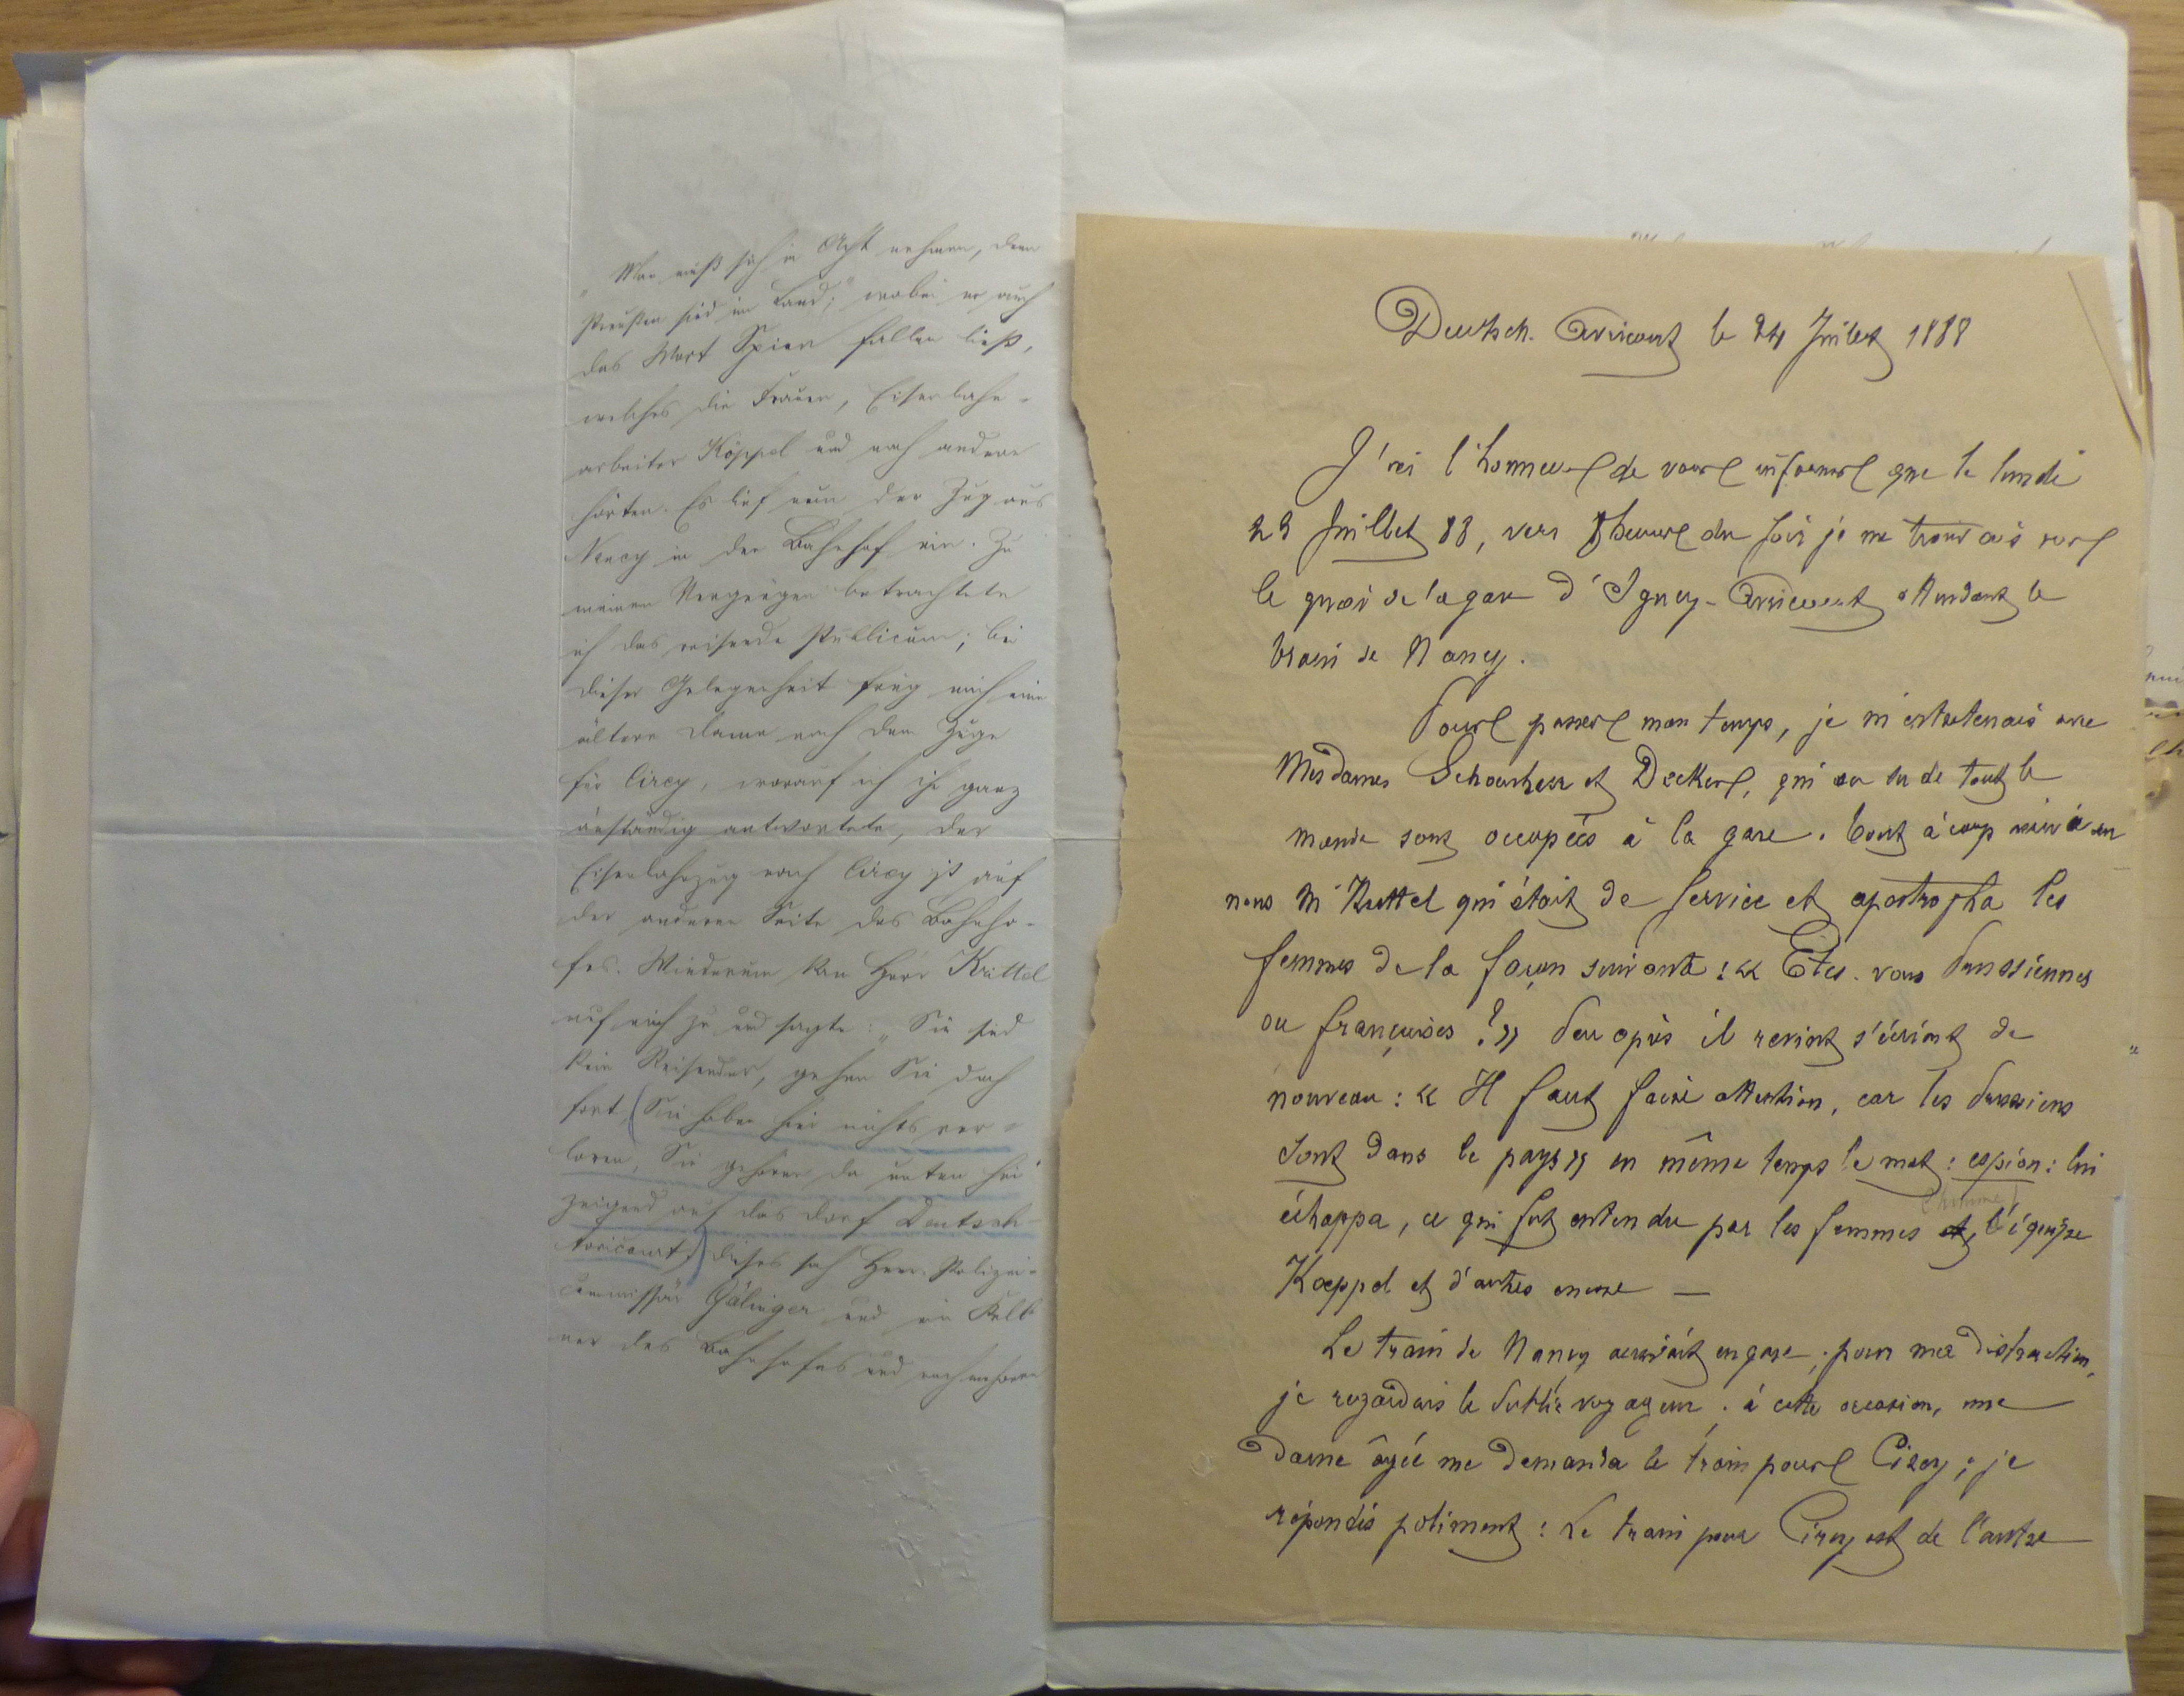 "Man muß sich in Acht nehmen, denn
Preußen sind im Land;" wobei er auch
das Wort Spion fallen ließ,
welches die Frauen, Eisenbahn-
arbeiter Köppel und noch andere
hörten. Es lief nun der Zug aus
Nancy in den Bahnhof ein. Zu
meinem Vergnügen betrachtete
ich das reisende Publicum; bei
dieser Gelegenheit frug mich eine
ältere Dame nach dem Zuge
für Cirey, worauf ich ihr ganz
anständig antwortete, der
Eisenbahnzug nach Cirey ist auf
der anderen Seite des Bahnho-
fes. Wiederum kam Herr Krittel
auf mich zu und sagte: "Sie sind
kein Reisender, gehen Sie doch
fort, (Sie haben hier nichts ver-
loren, Sie gehören da unten hin"
zeigend auf das Dorf Deutsch-
Avricourt,) dieses sah Herr Polizei-
commissär Gälinger und ein Kell-
ner des Bahnhofes und noch mehrere
Deutsch. Avricourt le 24 Juillet 1888
J'ai l'honneur de vous informer que le lundi
23 Juillet 88, vers 8 heures du soir je me trouvais sur
le quai de la gare d'Igney-Avricourt attendant le
train de Nancy.
Pour passer mon temps, je m'entretenais avec
Mesdames et Decker, qui au su de tout le
monde sont occupées à la gare. Tout à coup vint à
nous M Kuttel qui était de service et apostropha les
femmes de la façon suivante: « Etes-vous Prussiennes
ou françaises ? » Peu après il revint s'écriant de
nouveau: « Il faut faire attention, car les Prussiens
sont dans le pays » en même temps le mot: espion: lui
échappa, ce qui fut entendu par les femmes et, l'homme d'équipe
Koeppel et d'autres encore —
Le train de Nancy arrivait en gare; pour ma distraction,
je regardais le Public voyageur; à cette occasion, une
Dame âgée me demanda le train pour Cirey; je
répondis poliment: Le train pour Cirey est de l'autre